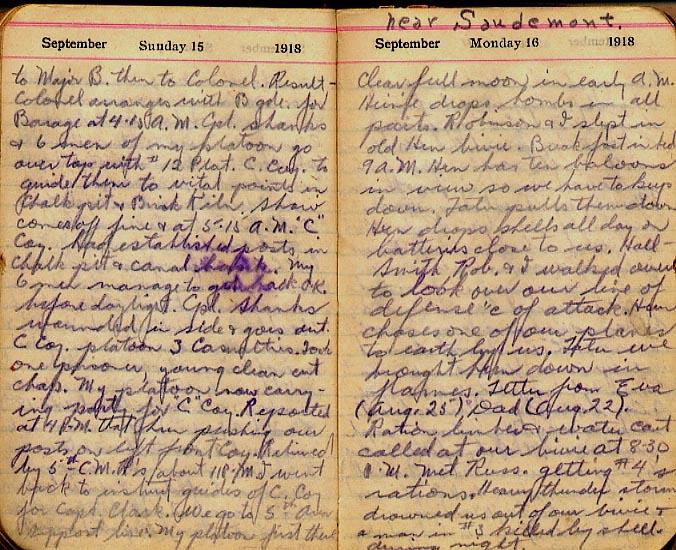 September Sunday 15 1918
to Major B. then to Colonel. Result-
Colonel arranges with Bgde. for
Barage at 4.45 A.M. Cpl. Shanks
& 6 men of my platoon go
over top with #12 Plat. C. Coy. to
guide them to vital points in
Chalk pit & Brick Kiln. Show
comes off fine & at 5.15 A.M. "C"
Coy. Had established posts in
Chalk pit & canal. My
6 men manage to get back O.K.
before daylight. Cpl. Shanks
wounded in side & goes out.
C Coy. platoon 3 Casualties. Took
one prisoner, young clean cut
chap. My platoon now carry-
ing party for "C" Coy. Reported
at 4 P.M. that Hun pushing our
posts on left front Coy. Relieved
by 5th C.M.R's about 11 P.M. I went
back to instruct guides of C. Coy
for Capt. Clark. We go to 5th
support line. My platoon just there
near Saudemont.
September Monday 16 1918
Clear full moon in early A.M.
Heinie drops bombs in all
parts. Robinson & I slept in
old Hun bivie. Breakfast in bed
9 A.M. Hun has ten baloons
in view so we have to keep
down. Later pulls them down
Hun drops shells all day on
batteries close to us. Hall-
Smith Rob. & I walked over
to look over our line of
defense "c of attack. Hun
chases one of our planes
to earth by us. Later we
brought Hun down in
flames. Letter from Eva
(Aug. 25) Dad (Aug. 22).
Ration limber & water cart
called at our bivie at 8.30
P.M. Met Russ. getting #4's
rations. Heavy thunder storm
drowned us out of our bivie &
a man in #3 killed by shell
during night.